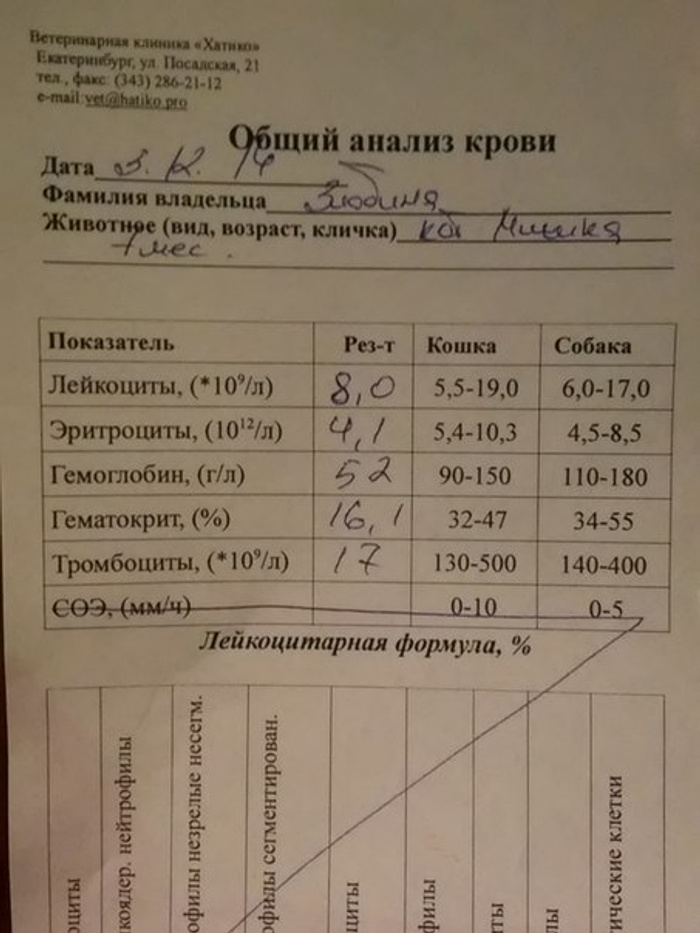 Ветеринарная клиника «Хатико»
Екатеринбург, ул. Посадская, 21
тел., факс: (343) 286-21-12
e-mail:vet@hatiko.pro
Общий анализ крови
Дата 3. 12. 14
Фамилия владельца Злобина
Животное (вид, возраст, кличка) кот Мишка
7 мес.
Показатель Рез-т Кошка Собака
Лейкоциты, (*10⁹/л) 8,0 5,5-19,0 6,0-17,0
Эритроциты, (10¹²/л) 4,1 5,4-10,3 4,5-8,5
Гемоглобин, (г/л) 52 90-150 110-180
Гематокрит, (%) 16,1 32-47 34-55
Тромбоциты, (*10⁹/л) 17 130-500 140-400
СОЭ, (мм/ч) 0-10 0-5
Лейкоцитарная формула, %
оциты
коядер. нейтрофилы
офилы незрелые несегм.
офилы сегментирован.
циты
филы
ты
лы
ические клетки